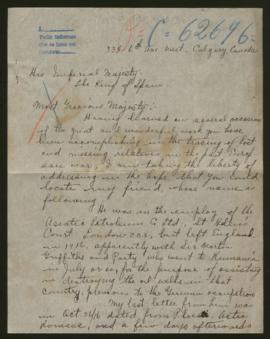 C=62696.
338 6th Ave. West. Calgary, Canada
His Imperial Majesty.
The King of Spain.
Most Gracious Majesty:-
Having learned on several occasions
of the great and wonderful work you have
been accomplishing in the tracing of lost
and missing relatives in the past Euro-
pean war, I am taking the liberty of
addressing in the hope that you could
locate my friend, whose name is
following
He was in the employ of the
Astra Petroleum Co Ltd. St Helens
Court London and left England
in 1916, apparently with Sir Norton
Griffiths and Party who went to Rumania
in July or so, for the purpose of assisting
in destroying the oil wells in that
country, previous to the German occupation
My last letter from him was
in Oct 1916 dated from Astra
Romana, and a few days afterwards